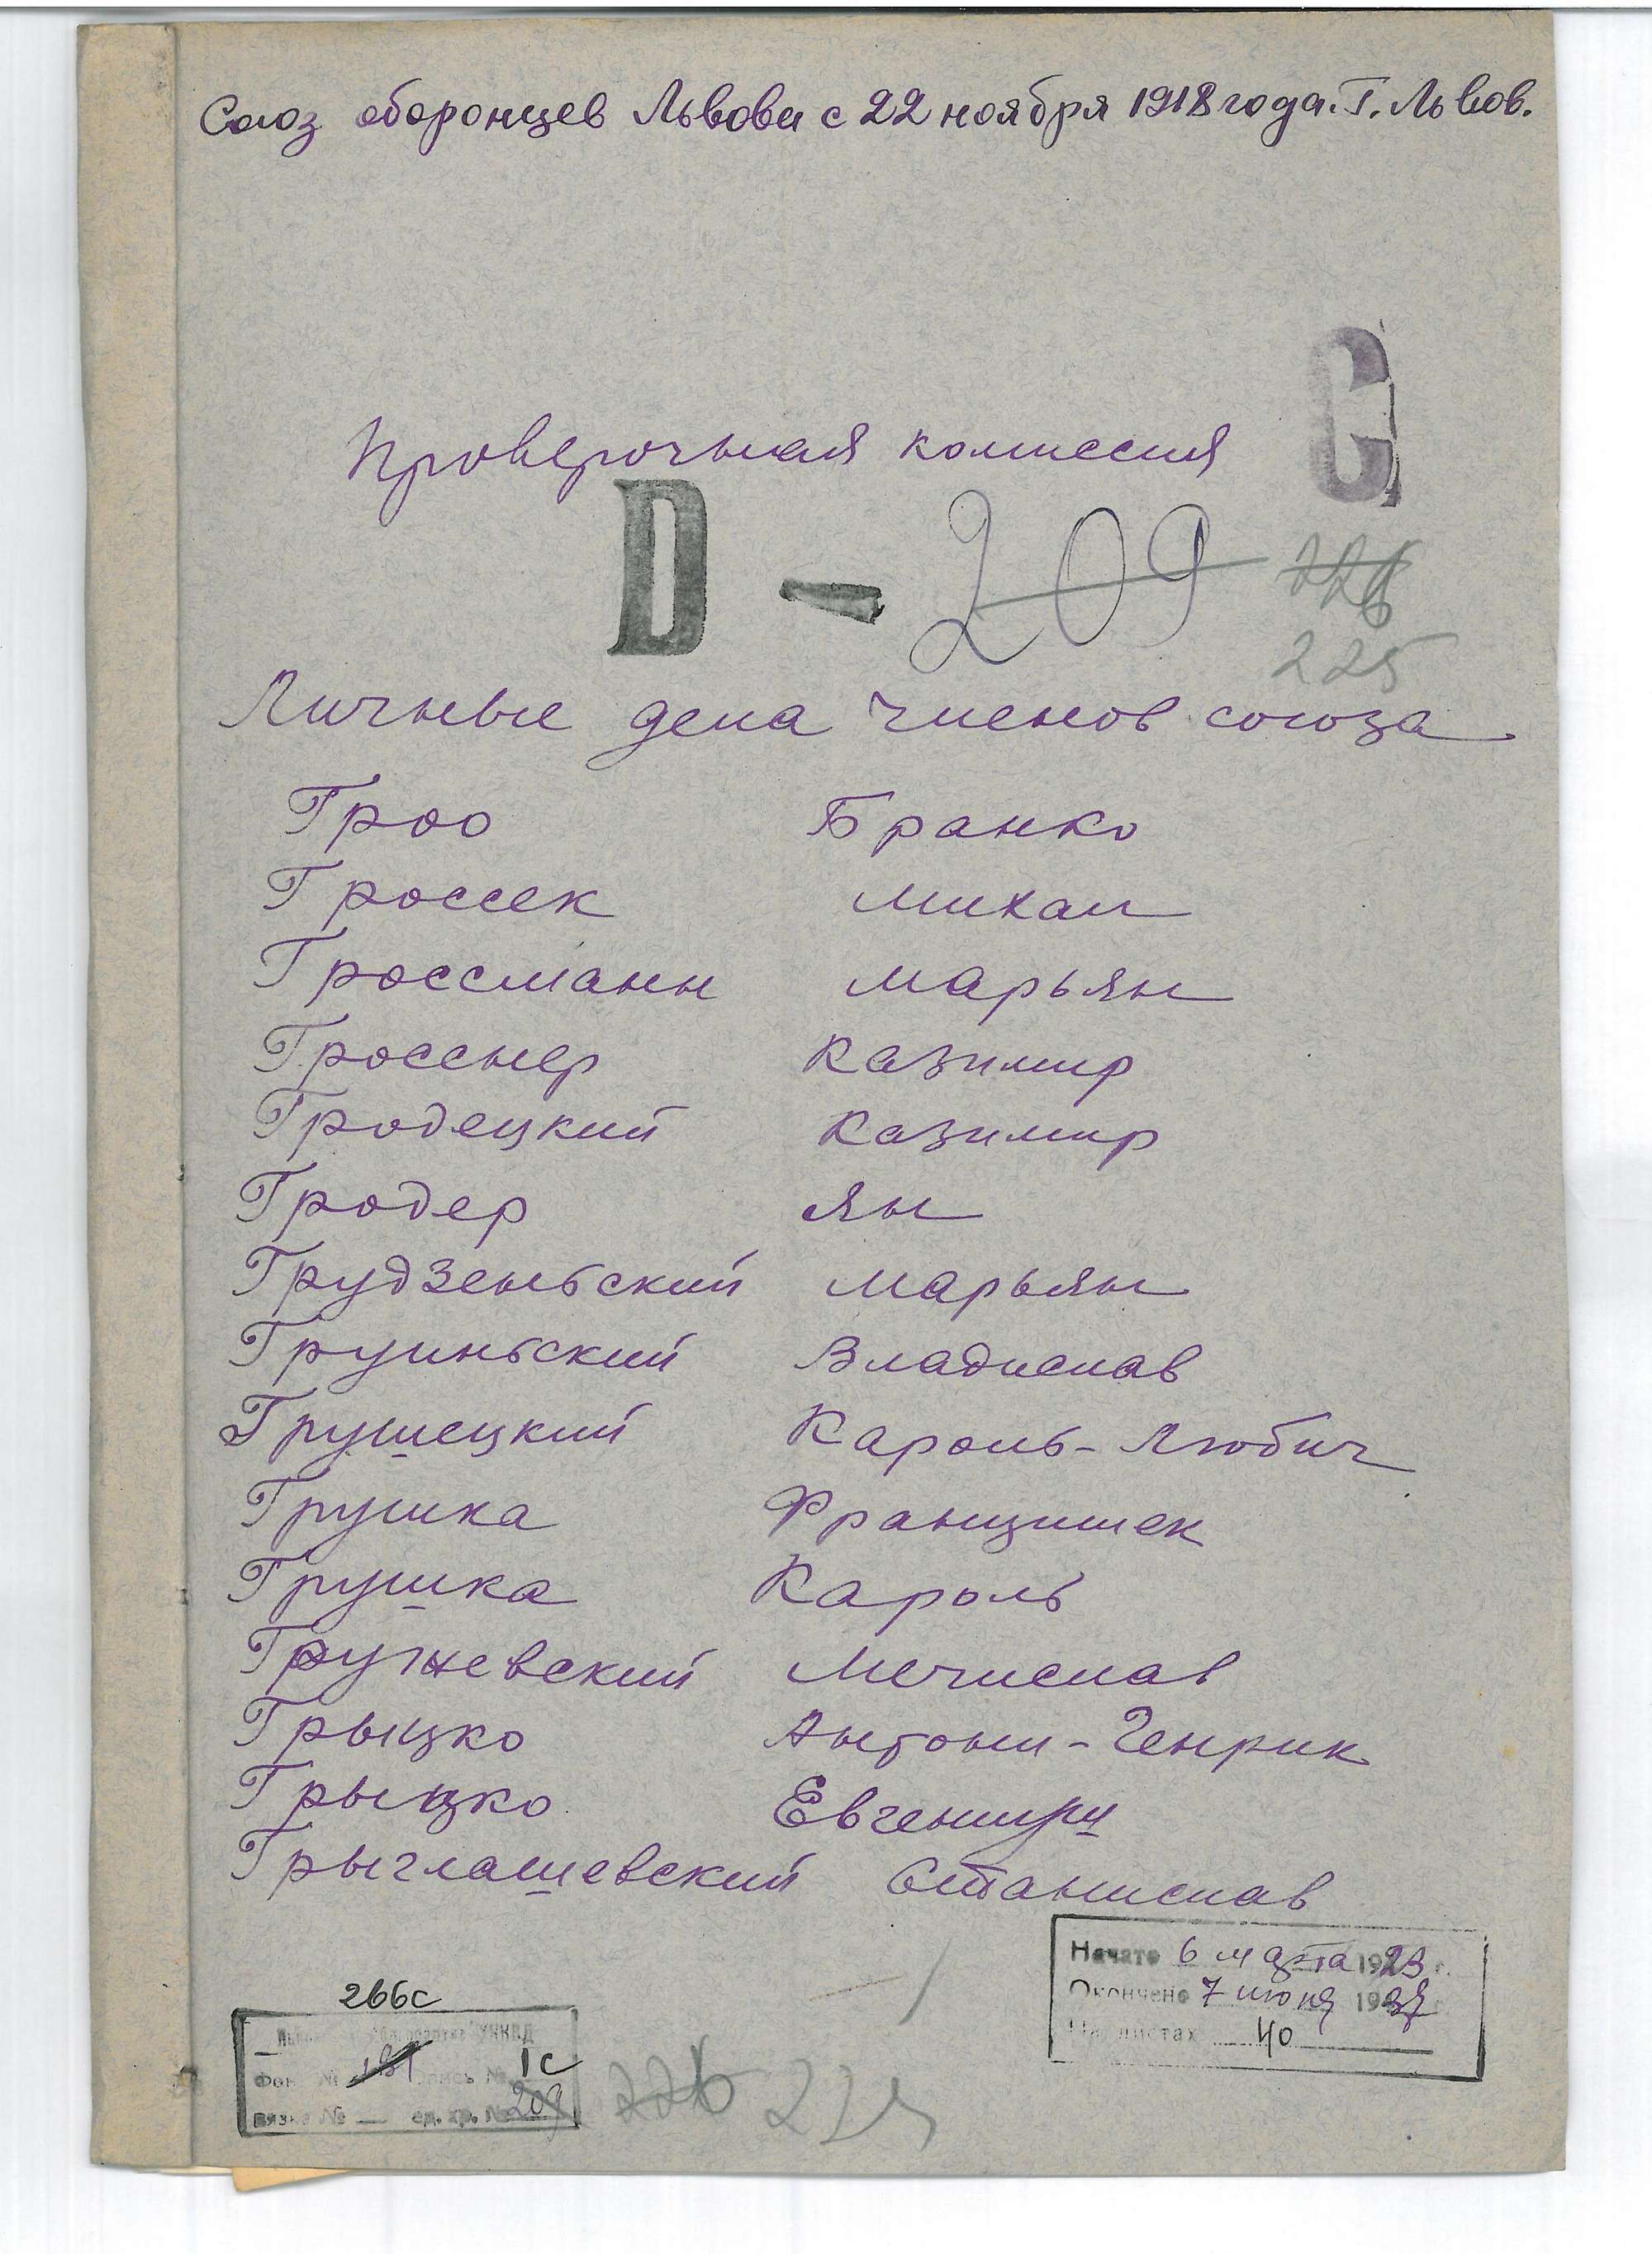 Союз оборонцев Львова с 22 ноября 1918 года. Г. Львов.
С
Проверочная комиссия
D - 209 226
225
Личные дела членов союза
Гроо Бранко
Гроссек Михал
Гроссманн Марьян
Гросснер Казимир
Гродецкий Казимир
Гродер Ян
Грудзеньский Марьян
Груиньский Владислав
Грушецкий Кароль-Любич
Грушка Францишек
Грушка Кароль
Гружевский Мечислав
Грыцко Антони-Генрик
Грыцко
Грыглашевский Станислав
Начато 6 марта 1923 г.
Окончено 7 июня 1939 г.
На листах 40
266с
УНКВД
Фонд № 131 опись № 1с
вязка № — ед. хр. № 209
226 225